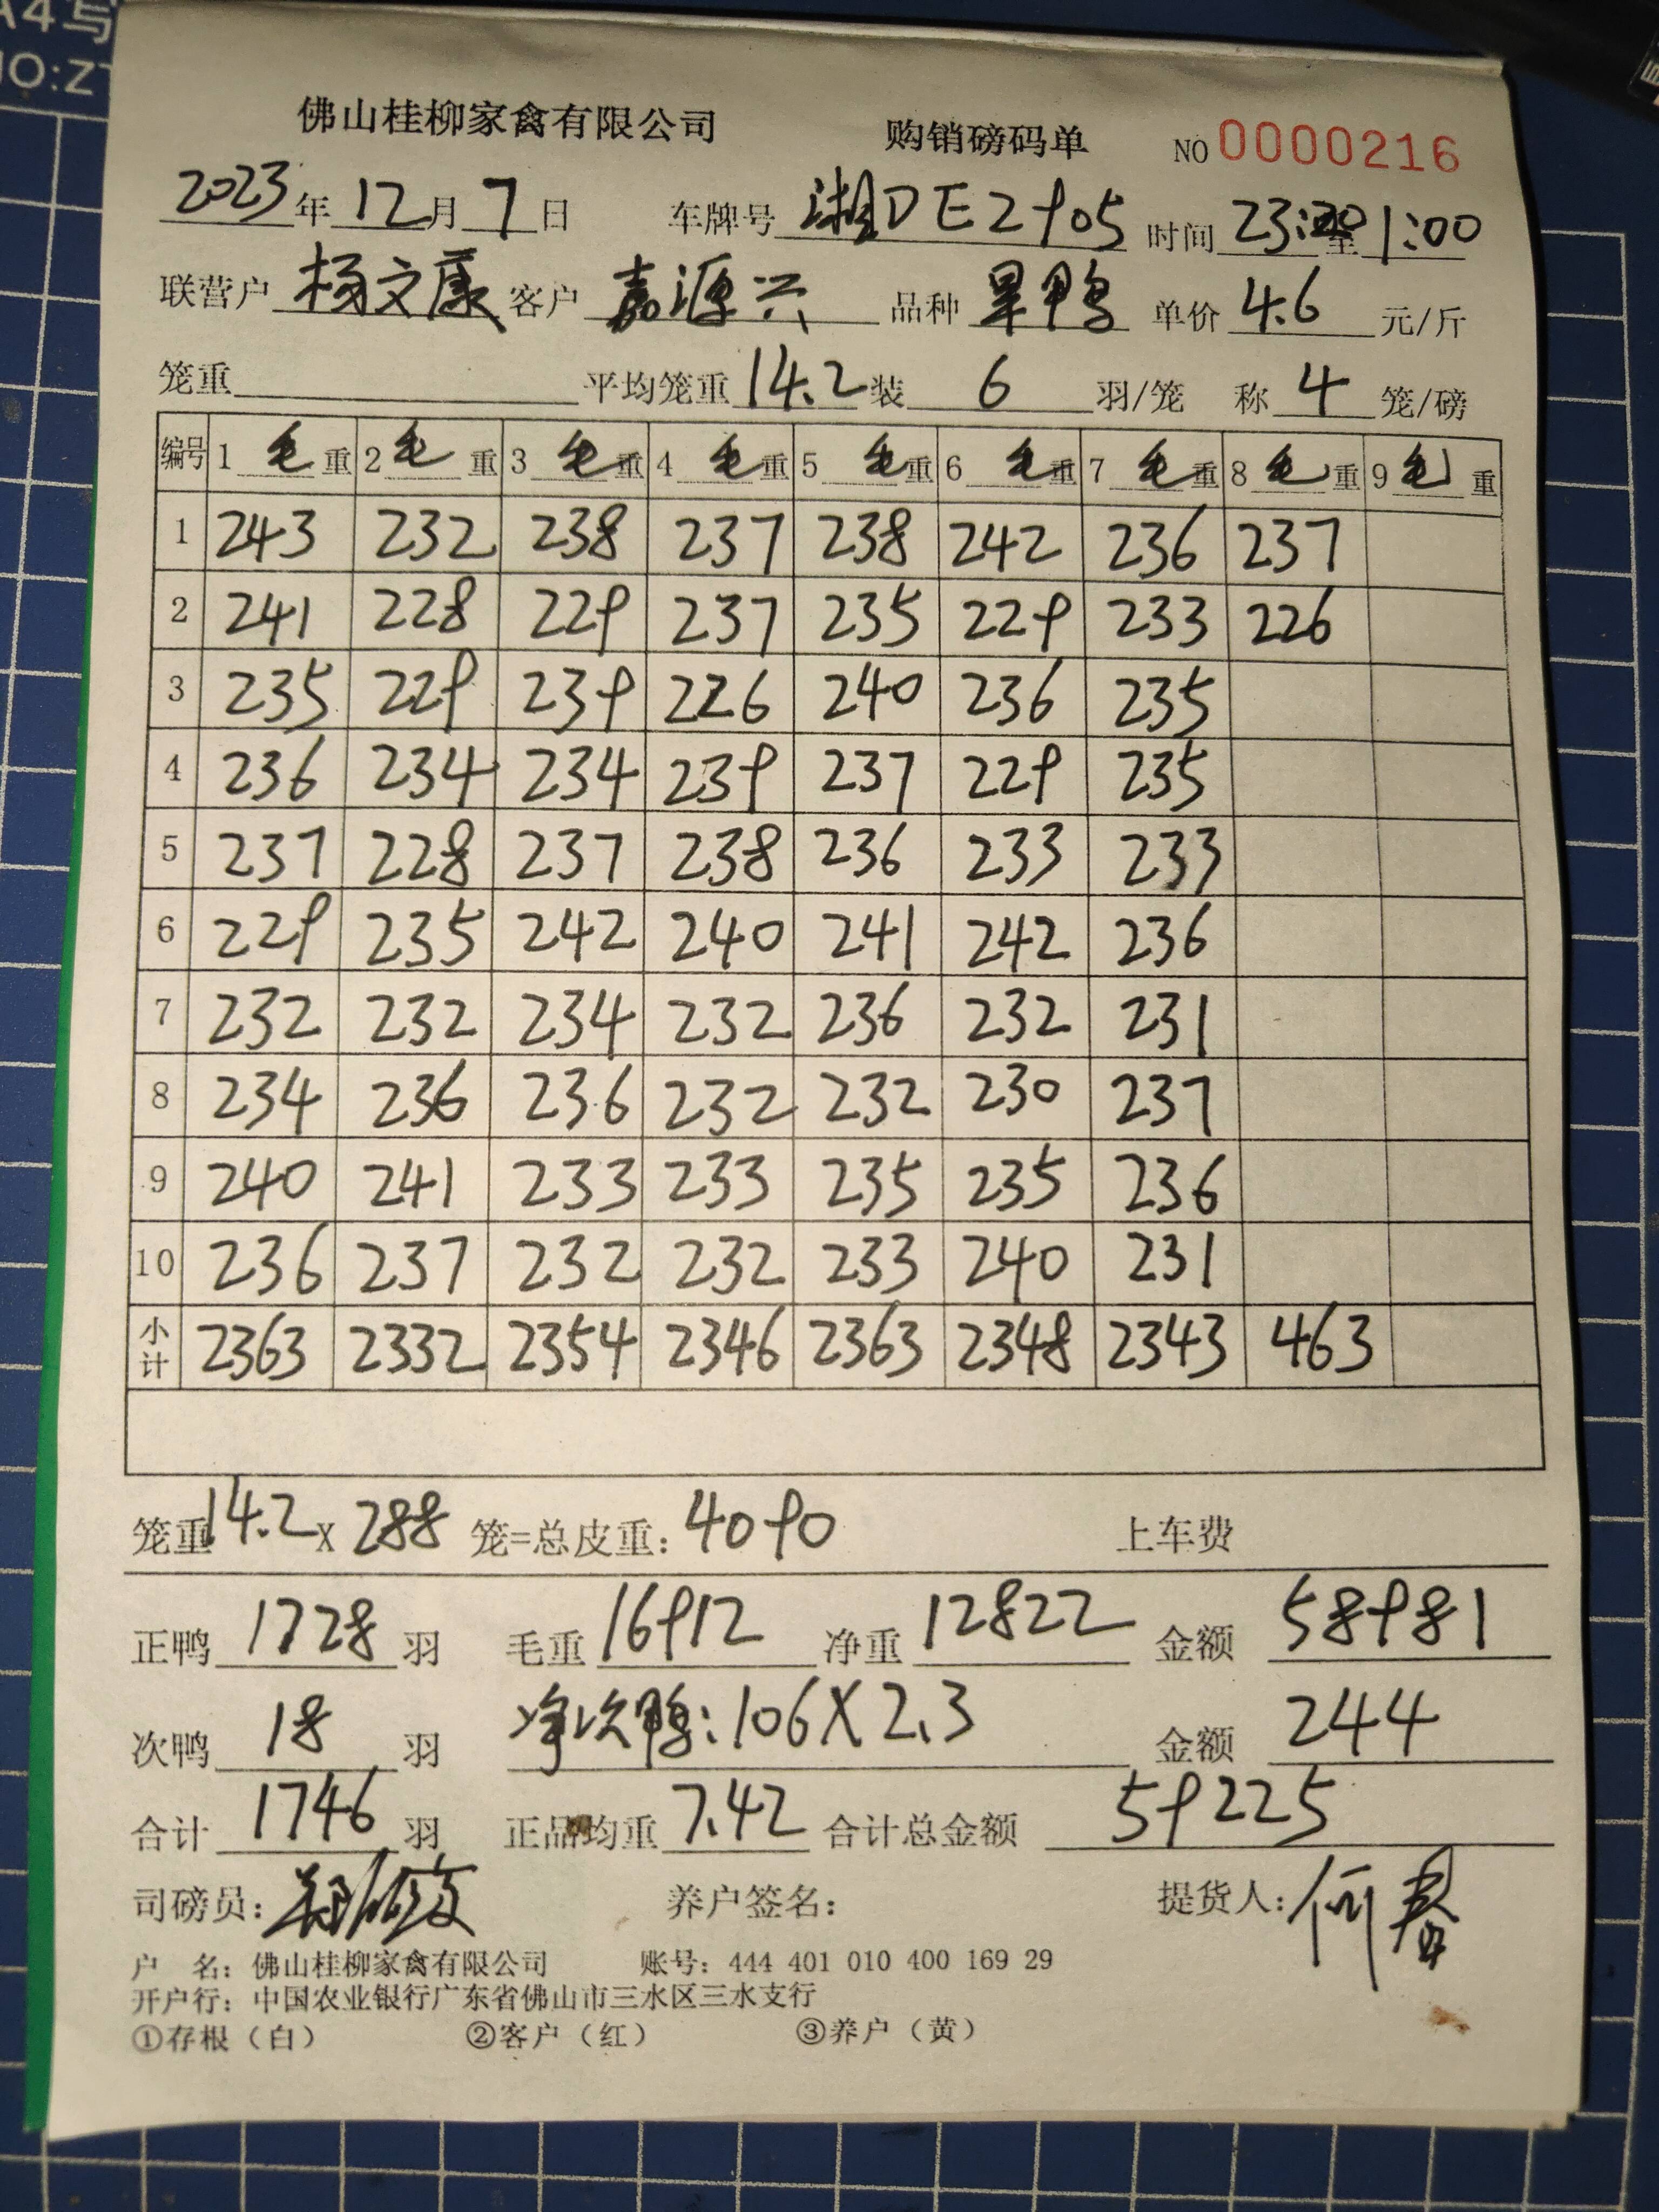 A4写
NO:Z
佛山桂柳家禽有限公司 购销磅码单 NO 0000216
2023年12月7日 车牌号 湘DE2905 时间 23:20至1:00
联营户 杨文康 客户 嘉源兴 品种 旱鸭 单价 4.6 元/斤
笼重 平均笼重 14.2 装 6 羽/笼 称 4 笼/磅
编号 1 毛重 2 毛重 3 毛重 4 毛重 5 毛重 6 毛重 7 毛重 8 毛重 9 毛重
1 243 232 238 237 238 242 236 237
2 241 228 229 237 235 229 233 226
3 235 229 239 226 240 236 235
4 236 234 234 239 237 229 235
5 237 228 237 238 236 233 233
6 229 235 242 240 241 242 236
7 232 232 234 232 236 232 231
8 234 236 236 232 232 230 237
9 240 241 233 233 235 235 236
10 236 237 232 232 233 240 231
小计 2363 2332 2354 2346 2363 2348 2343 463
笼重14.2X 288 笼=总皮重：4090 上车费
正鸭 1728 羽 毛重 16912 净重 12822 金额 58981
次鸭 18 羽 净次鸭：106X2.3 金额 244
合计 1746 羽 正品均重 7.42 合计总金额 59225
司磅员： 养户签名： 提货人：何春
户 名：佛山桂柳家禽有限公司 账号：444 401 010 400 169 29
开户行：中国农业银行广东省佛山市三水区三水支行
①存根（白） ②客户（红） ③养户（黄）